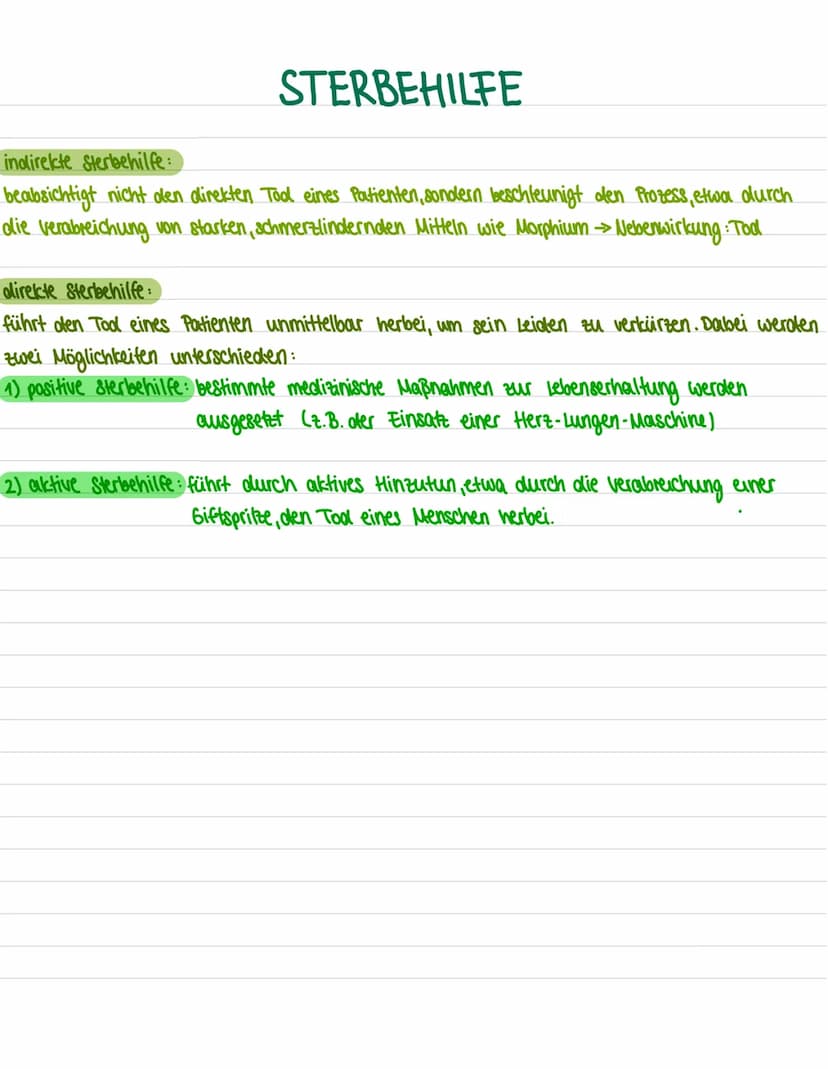 STERBEHILFE
indirekte Sterbehilfe:
beabsichtigt nicht den direkten Tod eines Patienten, sondern beschleunigt den Prozess, etwa durch
die Verabreichung von starken, schmerzlindernden Mitteln wie Morphium → Nebenwirkung: Tod
direkte Sterbehilfe:
führt den Tod eines Patienten unmittelbar herbei, um sein Leiden zu verkürzen. Dabei werden
zwei Möglichkeiten unterschieden:
1) positive Sterbehilfe: bestimmte medizinische Maßnahmen zur Lebenserhaltung werden
ausgesetzt (z.B. der Einsatz einer Herz-Lungen-Maschine)
2) aktive Sterbehilfe: führt durch aktives Hinzutun, etwa durch die Verabreichung einer
Giftspritze, den Tod eines Menschen herbei.